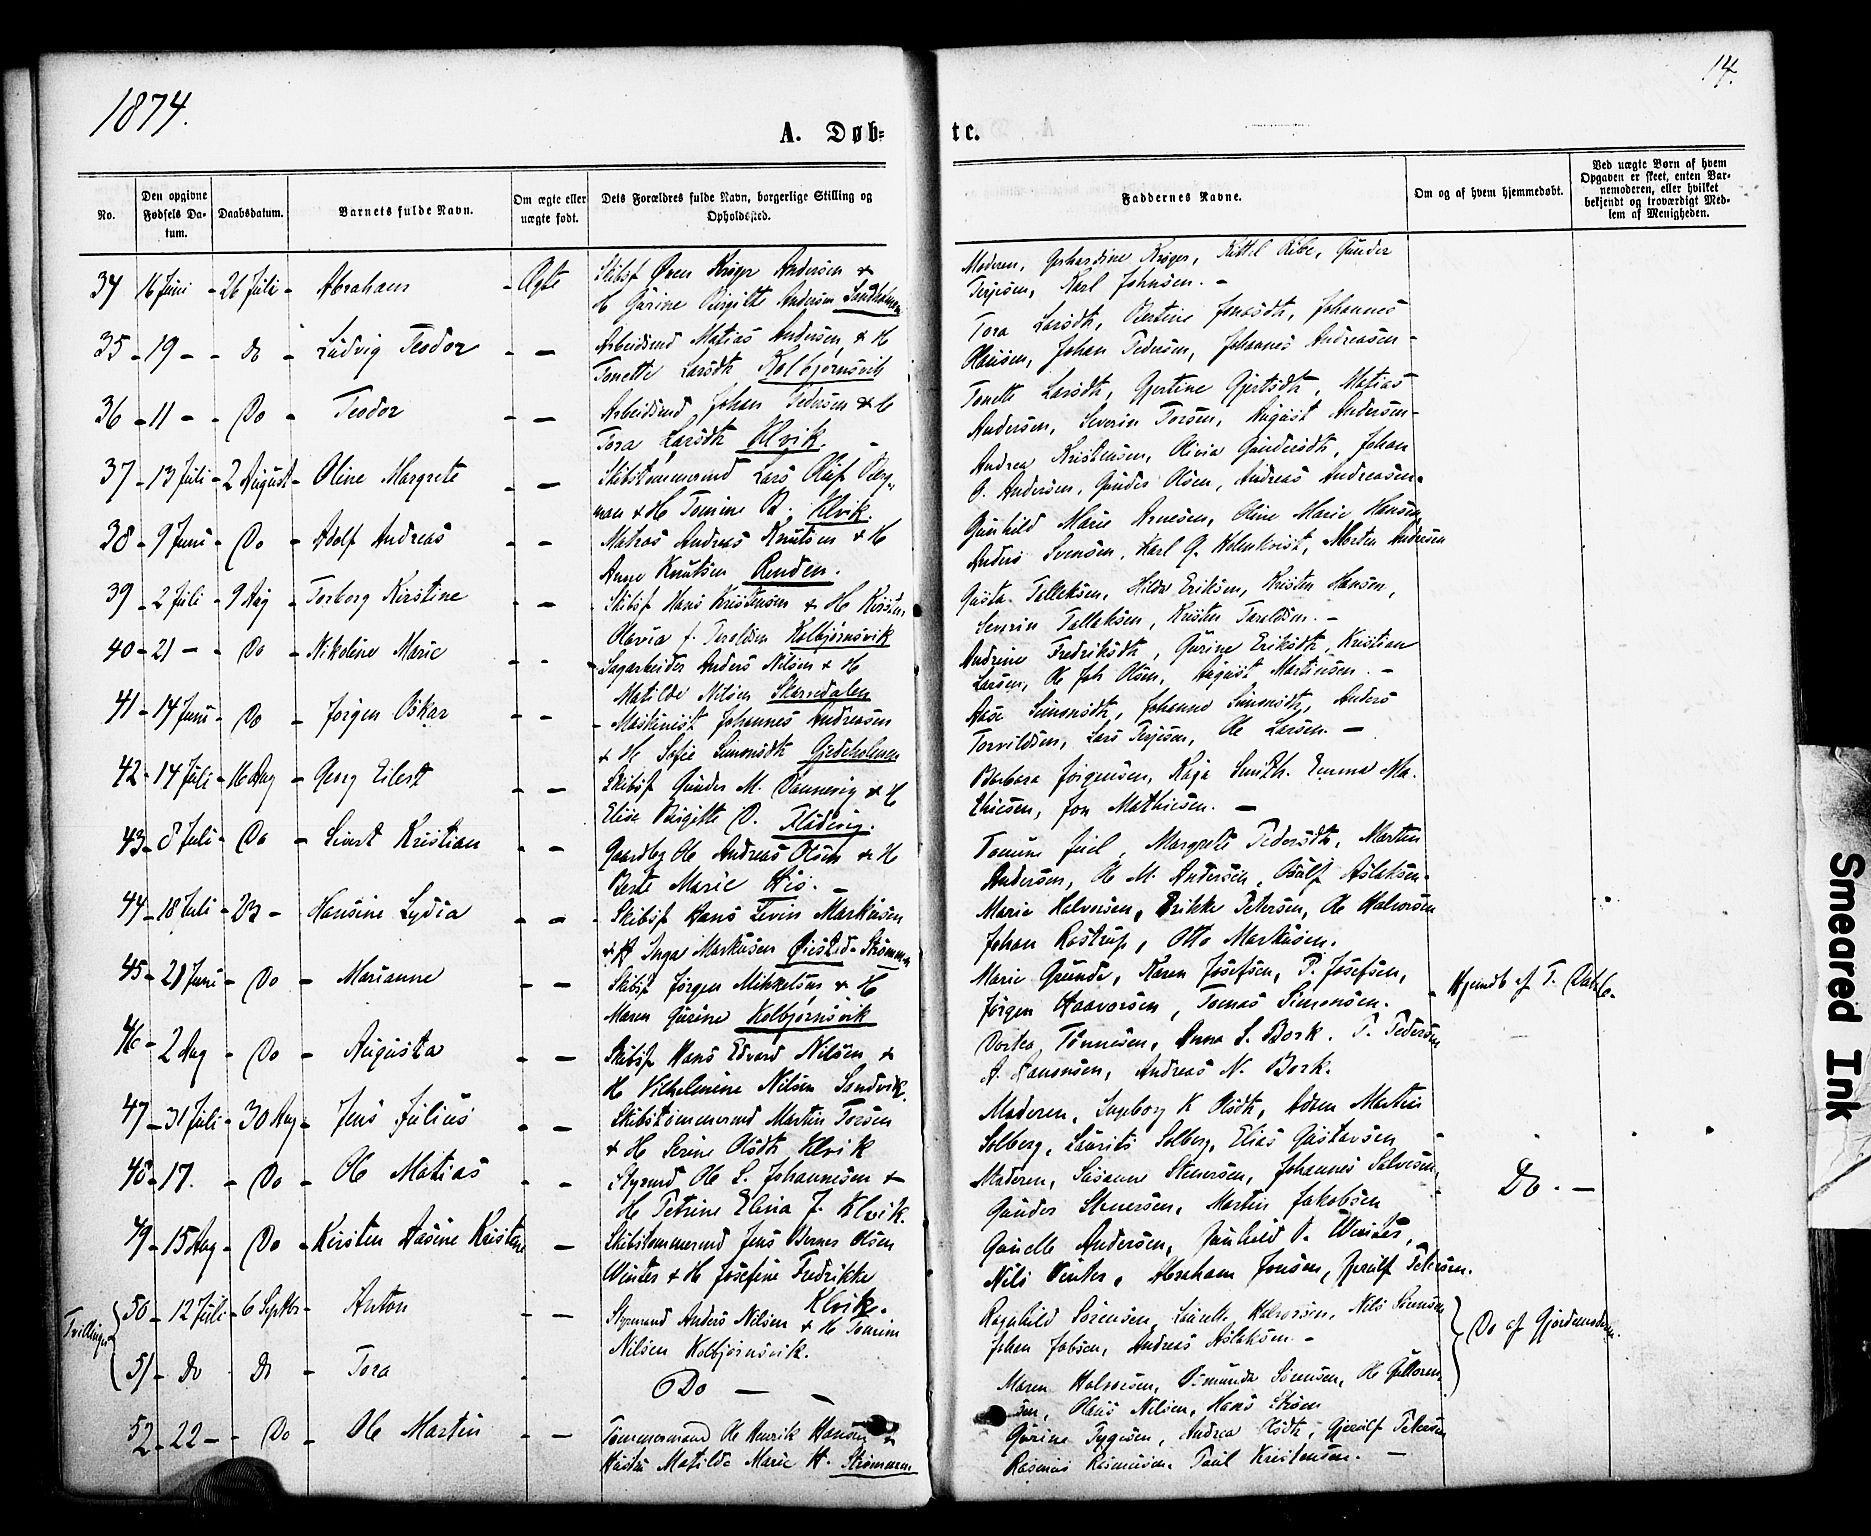 1874.
14.
A. Døb-
te.
No.
Den opgivne Fødsels Datum.
Daabsdatum.
Barnets fulde Navn.
Om ægte eller uægte født.
Dets Forældres fulde Navn, borgerlige Stilling og Opholdssted.
Faddernes Navne.
Om og af hvem hjemmedøbt.
Ved uægte Børn af hvem Opgaven er skeet, enten Barnemoderen, eller hvilket bekjendt og troværdigt Medlem af Menigheden.
34 16 Juni - 26 Juli - Abraham - Ægte Skibsf Andersen &
H Gurine Birgitte Andersen Sandholmen
Moderen, Gerhardine Krøger, Gunder
Terjesen, Karl Johnsen. -
35 - 19 - - do - Ludvig Teodor - - Arbeidsmd Matias Andersen & H
Tonette Larsdtr Kolbjørnsvik
Tora Larsdtr, Johannes
Hansen, Johan Pedersen, Johannes Andreasen -
36 - 11 - - Do - Teodor - - Arbeidsmd Johan Pedersen & H
Tora Larsdtr Klvik. -
Tonette Larsdtr, Gjertine Gjertsdtr, Matias
Andersen, Severin Torsen, August Andersen -
37 - 13 Juli - 2 August - Oline Margrete - - Skibstømmermd Lars Oluf Berg-
man & H Tomine B. Klvik.
Andrea Kristensen, Olivia Gundersdtr, Johan
O. Andersen, Gunder Olsen, Andreas Andreasen.
38 - 9 Juni - Do - Adolf Andreas - - Matros Andreas Knutsen & H
Anne Knutsen Renden.
Gunhild Marie Arnesen, Oline Marie Hansen
Anders Svensen, Karl G. Holmkvist, Morten Andersen
39 - 2 Juli - 9 Aug - Torborg Kirstine - - Skibsf Hans Kristensen & H Kirsten
Olavia f. Taraldsen Kolbjørnsvik
Gusta Tellefsen, Hilda Eriksen, Kristen Hansen,
Severin Tallaksen, Kristen Taraldsen. -
40 - 21 - - Do - Nikoline Marie - - Sagarbeider Anders Nilsen & H
Matilde Nilsen Skarredalen
Andrine Fredriksdtr, Gurine Eriksdtr, Kristian
Larsen, Ole Joh Olsen, August Martinsen. -
41 - 14 Juni - Do - Jørgen Oskar - - Maskinist Johannes Andreasen
& H Sofie Simonsdtr Gjedeholmen
Aase Simonsdtr, Johanne Simonsdtr, Anders
Torvildsen, Lars Terjesen, Ole Larsen. -
42 - 14 Juli - 16 Aug - Georg Eilert - - Skibsf Gunder M. Dannevig & H
Elise Birgitte D. Flødevig.
Barbara Jørgensen, Kaja Smith. Emma Ma-
thiesen, Jon Mathiesen. -
43 - 8 Juli - Do - Sivert Kristian - - Gaardbr Ole Andreas Olsen & H
Berte Marie His. -
Tomine Juel, Margrete Pedersdtr, Martin
Andersen, Ole M. Andersen, Aslaksen -
44 - 18 Juli - 23 - Hansine Lydia - - Skibsf Hans Levin Markusen
& H Inga Markusen Øiestad - Strømmen
Marie Halvorsen, Rikke Petersen, Ole Halvorsen
Johan Rostrup, Otto Markusen.
45 - 28 Juni - Do - Marianne - - Skibsf Jørgen Mikkelsen & H
Maren Gurine Kolbjørnsvik
Marie Grunde, Karen Josefsen, P. Josefsen,
Jørgen Haavorsen, Tomas Simonsen.
Hjemdt af T.
46 - 2 Aug - Do - Augusta - - Skibsf Hans Edvard Nilsen &
H Vilhelmine Nilsen Sandvik.
Dortea Tønnesen, Anna S. Bork. P. Pedersen
A. Hansen, Andreas N. Bork.
47 - 31 Juli - 30 Aug - Jens Julius - - Skibstømmermd Martin Torsen
& H Serine Olsdtr Klvik
Moderen, Ingeborg K Olsdtr, Adam Martin
Solberg, Lauritz Solberg, Elias Gustavsen
48 - 17. - Do - Ole Matias - - Styrmd Ole S. Johannesen &
H Petrine Elina J. Klvik.
Moderen, Susanne Stenersen, Johannes Salvesen,
Gunder Stenersen, Martin Jakobsen
Do. -
49 - 15 Aug - Do - Kirsten Aasine Kristine - Skibstømmermd Jens Bernes Olsen
Winter & H Josefine Fredrikke
Klvik.
Andersen, Gunhild O. Winter,
Nils Vinter, Abraham Jonsen, Gjerulf Petersen.
Tvillinger
50 - 12 Juli - 6 Septbr - Anton - - Styrmand Anders Nilsen & H Tomine
Nilsen Kolbjørnsvik.
Ragnhild Sørensen, Laurette Halvorsen, Nils Sørensen
Johan Jobsen, Andreas Aslaksen. -
Do af Gjordemoderen.
51 - do - do - Tora - Do - -
Maren Halvorsen, Osmunda Sørensen, Ole Guttorm-
sen, Hans Nilsen, Hans Strøm
52 - 22 - - Do - Ole Martin - - Tømmermand Ole Henrik Hansen &
Hustru Matilde Marie H. Strømmen
Gurine Tygesen, Andrea Olsdtr, Gjerulf Petersen
Rasmus Rasmussen, Paul Kristensen. -
Smeared Ink